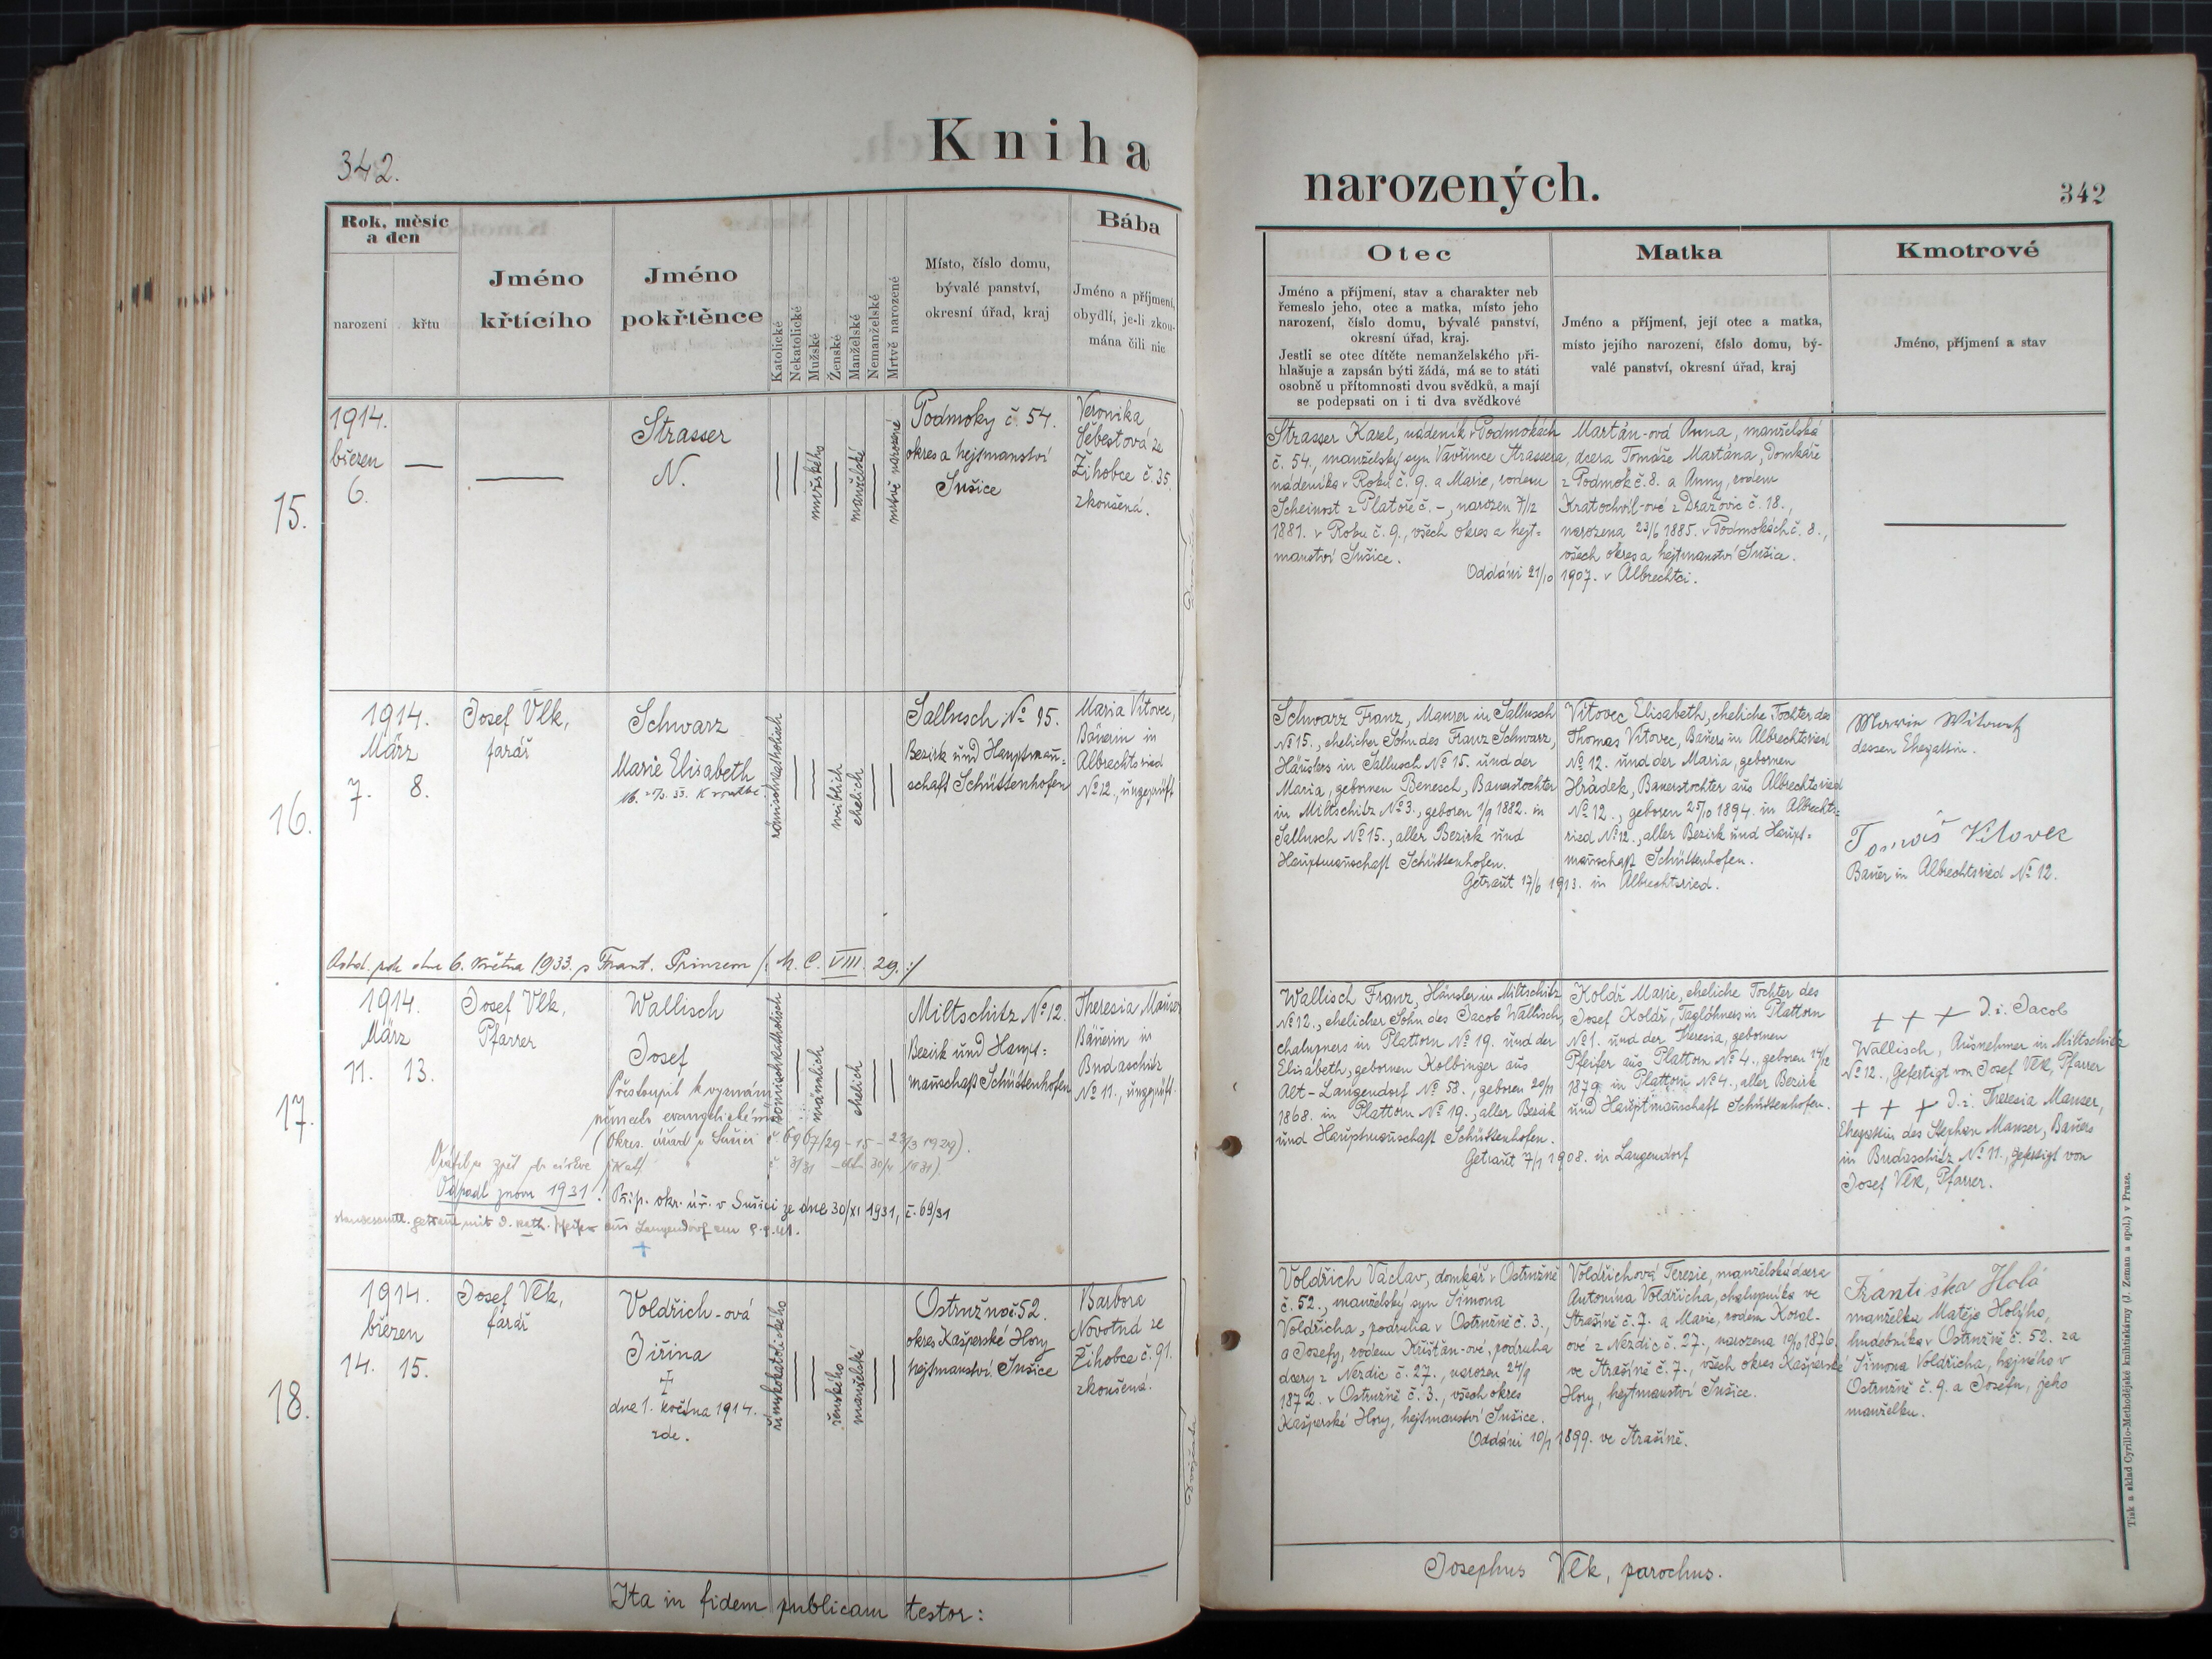 342.
Kniha
Rok, měsíc
a den
narození
křtu
Jméno
křtícího
Jméno
pokřtěnce
Katolické
Nekatolické
Mužské
Ženské
Manželské
Nemanželské
Mrtvě narozené
Místo, číslo domu,
bývalé panství,
okresní úřad, kraj
Bába
Jméno a příjmení,
obydlí, je-li zkou-
mána čili nic
15.
1914.
březen
6.
Strasser
N.
mužského
manželské
mrtvě narozené
Podmoky č. 54.
okres a hejtmanství
Sušice
Veronika
Šebestová ze
Žihobce č. 35.
zkoušená.
16.
1914.
März
7. 8.
Josef Vlk,
farář
Schwarz
Marie Elisabeth
römischkatholisch
weiblich
ehelich
Sallusch No 15.
Bezirk und Hauptman-
schaft Schüttenhofen
Maria Vítovec,
Bäuerin in
Albrechtsried
No 12., ungeprüft
6. května 1933. s Frant. Prinzem /: M. C. VIII. 29. :/
17.
1914.
März
11. 13.
Josef Vlk,
Pfarrer
Wallisch
Josef
Přestoupil k vyznání
německ. evangelickému
(Okres. úřad v Sušici č. 6967/29 - 15 - 23/3 1929).
römischkatholisch
männlich
ehelich
Miltschitz No 12.
Bezirk und Haupt-
mannschaft Schüttenhofen
Theresia Mauser
Bäuerin in
Budaschitz
No 11., ungeprüft.
Vrátil se zpět do církve
Odpadl znovu 1931! Příp. okr. úř. v Sušici ze dne 30/XI 1931, č. 69/31
standesamtl. getraut mit d. kath. Pfeifer aus Langendorf am
18.
1914.
březen
14. 15.
Josef Vlk,
farář
Voldřich-ová
Jiřina
dne 1. května 1914.
zde.
římskokatolického
ženského
manželské
Ostružno č. 52.
okres Kašperské Hory
hejtmanství Sušice
Barbora
Novotná ze
Žihobce č. 91.
zkoušená.
Ita in fidem publicam testor:
narozených.
342
Otec
Jméno a příjmení, stav a charakter neb
řemeslo jeho, otec a matka, místo jeho
narození, číslo domu, bývalé panství,
okresní úřad, kraj.
Jestli se otec dítěte nemanželského při-
hlašuje a zapsán býti žádá, má se to státi
osobně u přítomnosti dvou svědků, a mají
se podepsati on i ti dva svědkové
Matka
Jméno a příjmení, její otec a matka,
místo jejího narození, číslo domu, bý-
valé panství, okresní úřad, kraj
Kmotrové
Jméno, příjmení a stav
Strasser Karel, nádeník v Podmokách
č. 54., manželský syn Vavřince Strassera,
nádeníka v Roku č. 9. a Marie, rodem
Scheinost z Platoře č. -, narozen 7/12
1881. v Roku č. 9., všech okres a hejt-
manství Sušice.
Martán-ová Anna, manželská
dcera Tomáše Martána, Domkáře
z Podmok č. 8. a Anny, rodem
Kratochvíl-ové z Dražovic č. 18.,
narozena 23/6 1885. v Podmokách č. 8.,
všech okres a hejtmanství Sušice.
Oddáni 21/10 1907. v Albrechtci.
Schwarz Franz, Maurer in Sallusch
No 15., ehelicher Sohn des Franz Schwarz,
Häuslers in Sallusch No 15. und der
Maria, gebornen Benesch, Bauerstochter
in Miltschitz No 3., geboren 1/9 1882. in
Sallusch No 15., aller Bezirk und
Hauptmanschaft Schüttenhofen.
Vítovec Elisabeth, eheliche Tochter des
Thomas Vítovec, Bauers in Albrechtsried
No 12. und der Maria, gebornen
Hrádek, Bauerstochter aus Albrechtsried
No 12., geboren 25/10 1894. in Albrechts-
ried No 12., aller Bezirk und Haupt-
manschaft Schüttenhofen.
Getraut 17/6 1913. in Albrechtsried.
dessen Ehegattin.
Tomáš Vítovec
Bauer in Albrechtsried No 12.
Wallisch Franz, Häusler in Miltschitz
No 12., ehelicher Sohn des Jacob Wallisch,
chalupners in Plattorn No 19. und der
Elisabeth, gebornen Kolbinger aus
Alt-Langendorf No 58., geboren 20/11
1868. in Plattorn No 19., aller Bezirk
und Hauptmanschaft Schüttenhofen.
Kolář Marie, eheliche Tochter des
Josef Kolář, Taglöhners in Plattorn
No 1. und der Theresia, gebornen
Pfeifer aus Plattorn No 4., geboren 14/12
1879. in Plattorn No 4., aller Bezirk
und Hauptmanschaft Schüttenhofen.
Getraut 7/1 1908. in Langendorf
+ + + d. i. Jacob
Wallisch, Ausnehmer in Miltschitz
No 12., Gefertigt von Josef Vlk, Pfarrer
+ + + d. i. Theresia Mauser,
Ehegattin des Stephan Mauser, Bauers
in Budaschitz No 11., gefertigt von
Josef Vlk, Pfarrer.
Voldřich Václav, domkář v Ostružně
č. 52., manželský syn Šimona
Voldřicha, podruha v Ostružně č. 3.,
a Josefy, rodem Křišťan-ové, podruha
dcery z Nezdic č. 27., narozen 24/9
1872. v Ostružně č. 3., všech okres
Kašperské Hory, hejtmanství Sušice.
Voldřichová Terezie, manželská dcera
Antonína Voldřicha, chalupníka ve
Strašíně č. 7. a Marie, rodem Koval-
ové z Nezdic č. 27., narozena 19/10 1876.
ve Strašíně č. 7., všech okres Kašperské
Hory, hejtmanství Sušice.
Oddáni 10/1 1899. ve Strašíně.
Františka Holá
manželka Matěje Holýho,
hudebníka v Ostružně č. 52. za
Šimona Voldřicha, hajného v
Ostružně č. 9. a Josefu, jeho
manželku.
Josephus Vlk, parochus.
Tisk a sklad Cyrillo-Methodějské knihtiskárny (J. Zeman a spol.) v Praze.